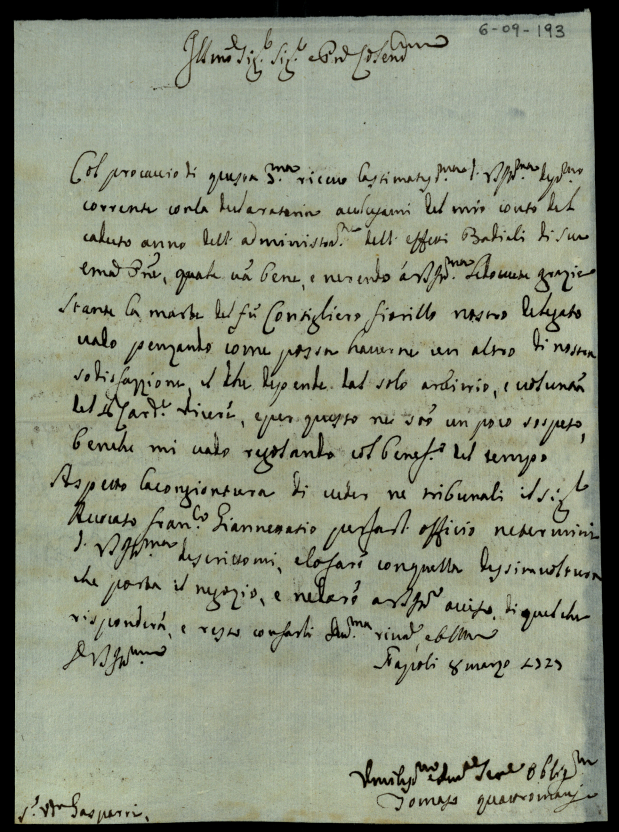 6-09-193
Illmo Sig.r Sig.r e Pne Colendmo
Col procaccio di questa Sma ricevo la stimatissma di VSIllma
corrente con la dichiaratoria del mio conto del
caduto anno dell' administrne dell' effetti Badiali di Sua
Pne, quale và bene, e ne rendo à VSIllma le dovute grazie
Stante la morte del fù Consigliero Fiorillo nostro delegato
vado penzando come possa haverne un altro di nostra
sodisfazzione, il che depende dal solo arbitrio, e voluntà
del Card.l Vicerè, e per questo ne stò un poco sospeso,
benche mi vado regolando col benef.o del tempo
Aspetto la congiontura di veder ne tribunali il Sig.r
Avocato Fran.co Giannettasio per farli officio ne termini
di VSIllma descrittomi, e lo farò con quella desinvoltura
che porta il negozio, e ne darò a VSIllma aviso di quel che
risponderà, e resto con farli
di VSIllma Napoli 8 marzo 1727
Umilissmo Serre Obligmo
Tomaso Quattromani
Gasparri.